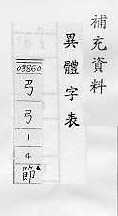 補充資料
異體字表
03860
弓
弓
1
4
節